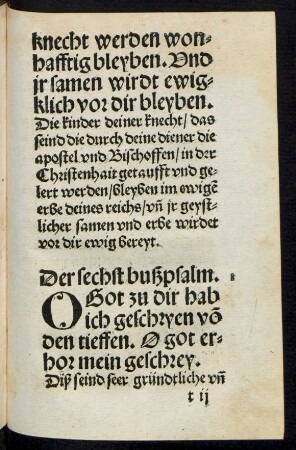 knecht werden won-
hafftig bleyben. Vnd
jr samen wirdt ewig-
klich vor dir bleyben.
Die kinder deiner knecht/ das
seind die durch deine diener die
apostel vnd Bischoffen/ in der
Christenhait getaufft vnd ge-
lert werden/ bleyben im ewigē
erbe deines reichs/ vñ jr geyst-
licher samen vnd erbe wirdet
vor dir ewig bereyt.
Der sechst bußpsalm.
O Got zu dir hab
ich geschryen võ
den tieffen. O got er-
hor mein geschrey.
Diß seind seer gründtliche vñ
t ij